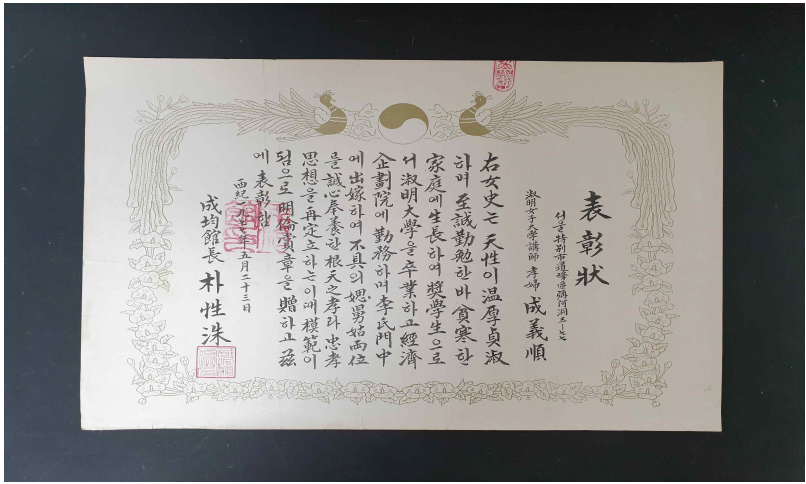 表彰状
서울特別市道峰區彌阿洞三ー七七
淑明女子大學講師 孝婦 成義順
右女史는 天性이 温厚貞淑
하며 至誠勤勉한바 貧寒한
家庭에 生長하여 奬學生으로
서 淑明大學을 卒業하고 經濟
企劃院에 勤務하며 李氏門中
에 出嫁하여 不具의 媤男姑 兩位
를 誠心奉養한 根天之孝라 忠孝
思想을 再定立하는 이때 模範이
됨으로 明倫賞章을 贈하고 玆
에 表彰함
西紀一九七七年五月二十三日
成均館長 朴性洙